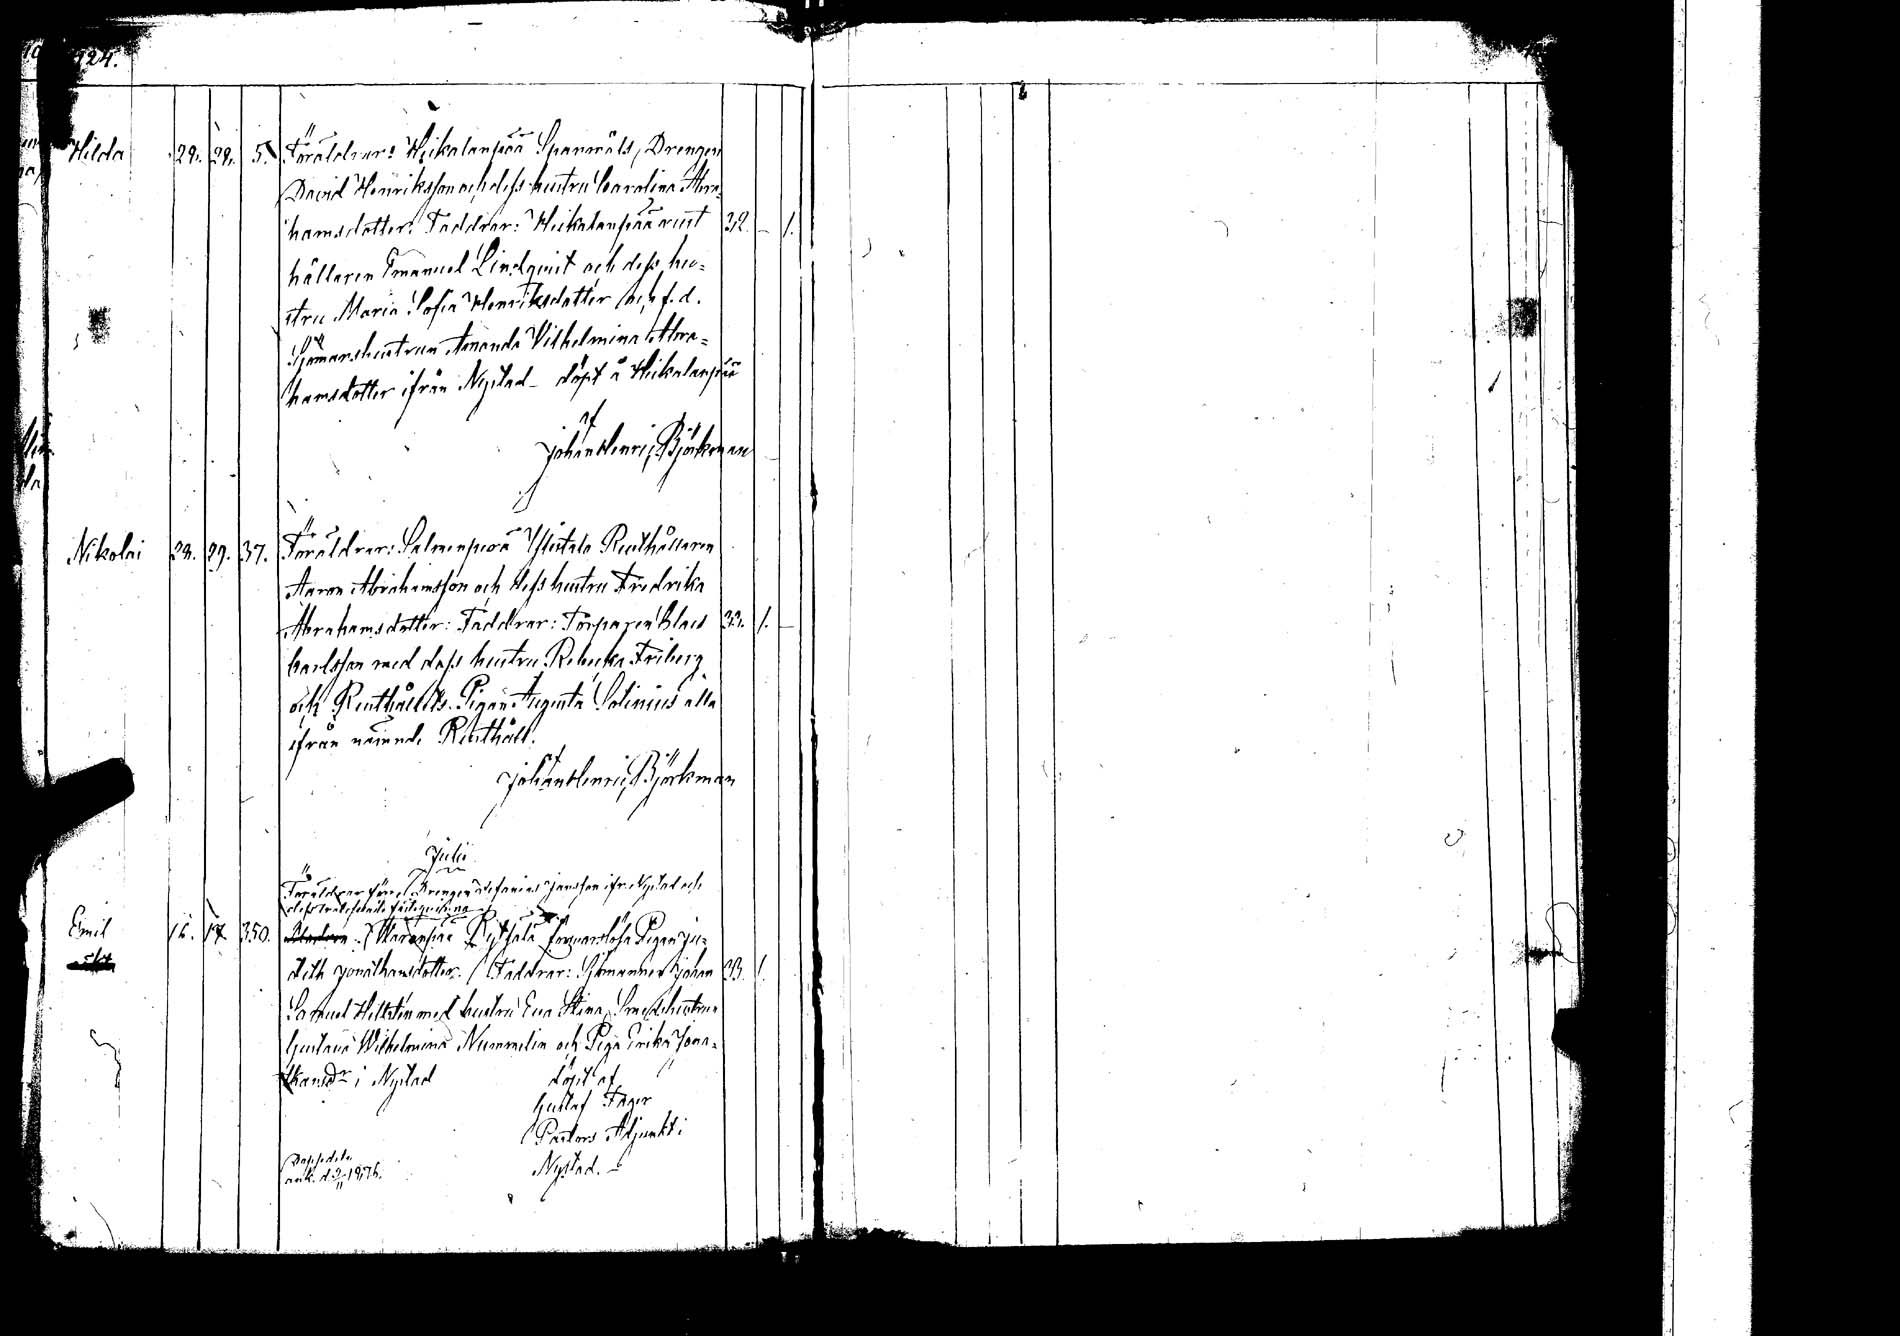 124.
Hilda 29. 29. 5. Föräldrar: Heikolanpää Sparvräls, Drengen
David Henriksson och dess hustru Carolina Abra=
hamsdotter. Faddrar: Heikolanpää rust 32. – 1.
hållaren Emanuel Lindqvist och dess hu=
stru Maria Sofia Henriksdotter och f.d.
Sjömanshustrun Amanda Vilhelmina Abra=
hamsdotter ifrån Nystad – döpt å Heikolanpää
af
Johan Henric Björkman
Nikolai 28. 29. 37. Föräldrar: Rusthållaren
Aaron Abrahamsson och dess hustru Fredrika
Abrahamsdotter: Faddrar: Torparen Claes 33. 1. –
Carlsson med dess hustru Rebecka Friberg
och Rusthållets Pigan Augusta Solinius alla
ifrån nämnde Rusthåll.
af
Johan Henric Björkman
Julii
Föräldrar förre Drengen Jansson ifr. Nystad och
dess
Emil 16. 17 350. försvarslösa Pigan Ju=
dith Jonathansdotter. Faddrar: Sjömannen Johan 33. 1.
Samuel Hellstén med hustru Eva Stina, Smedshustrun
Gustava Wilhelmina Nummelin och Piga Erika Jona=
thansdr i Nystad döpt af
Gustaf Fager
Pastors Adjunkt i
Nystad. –
ank. d.